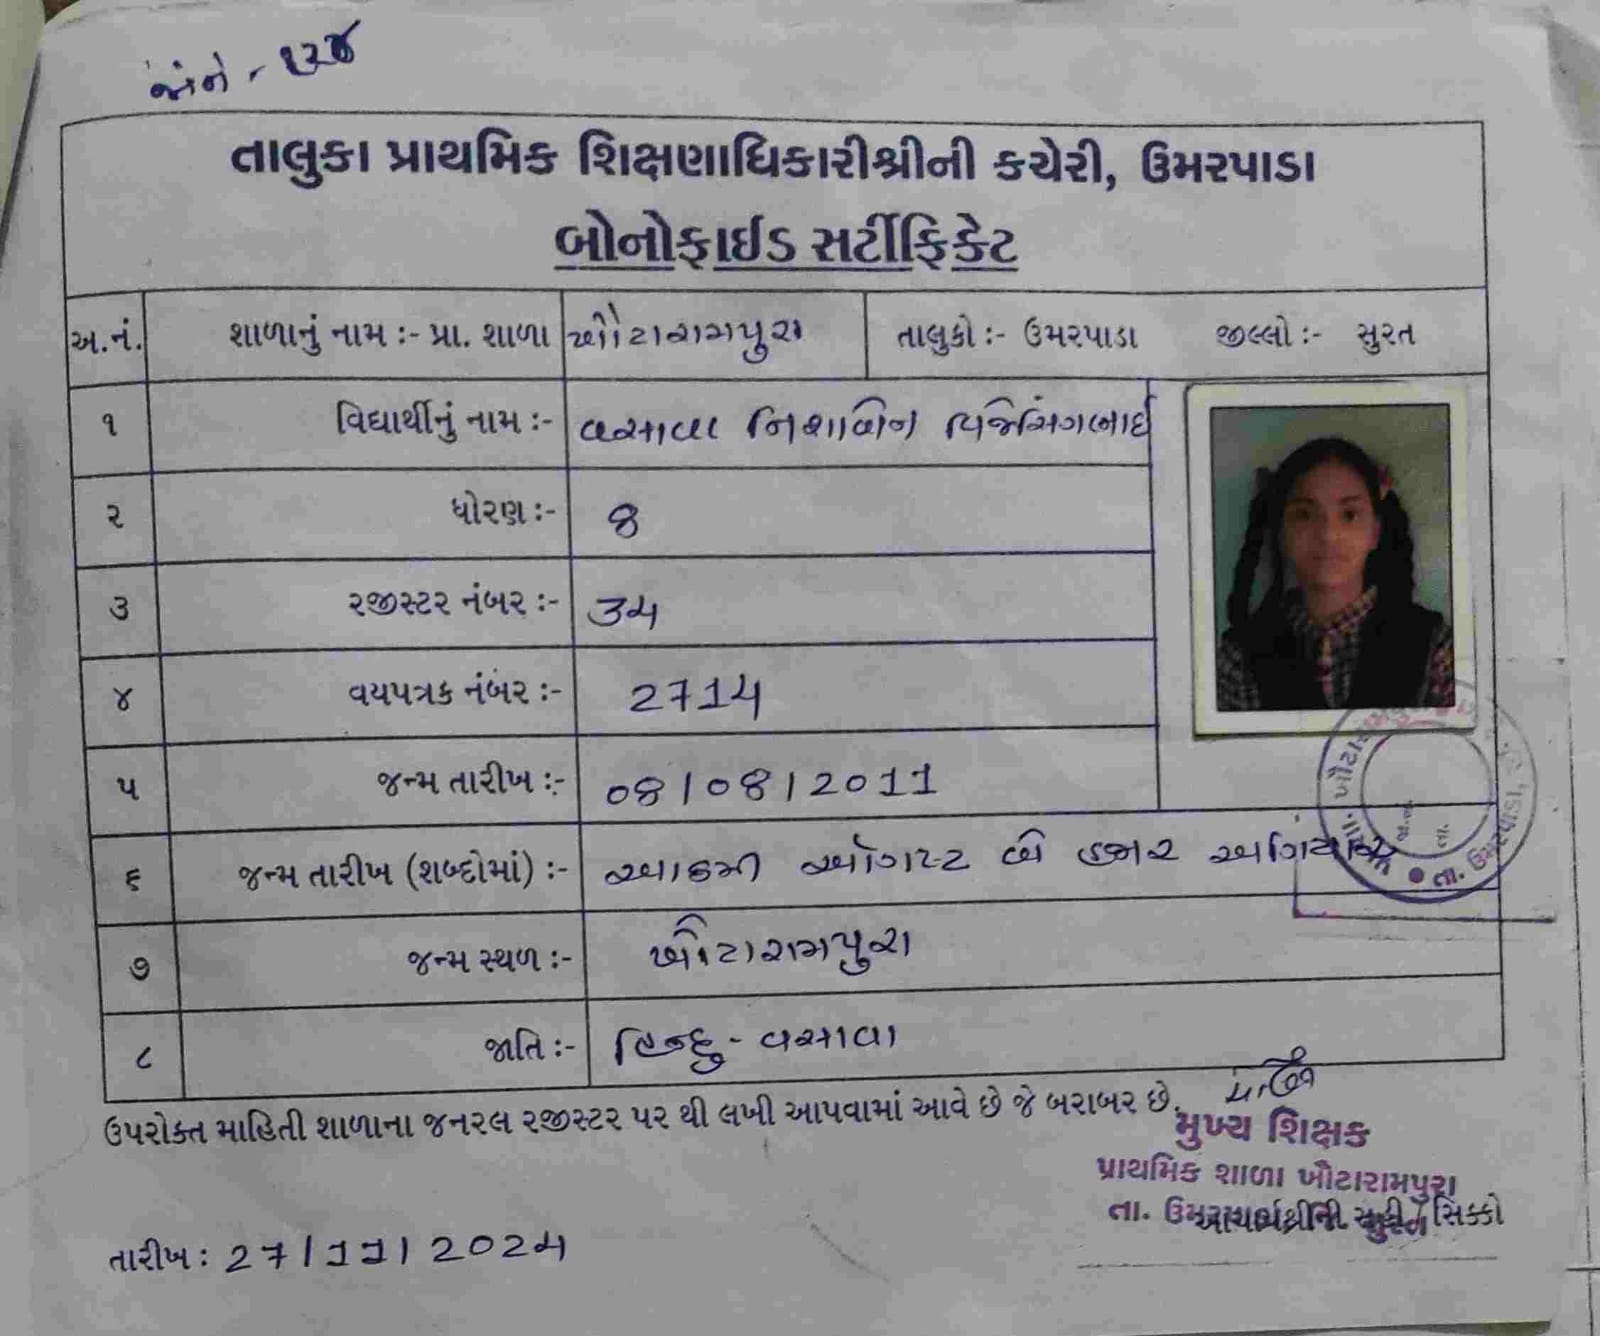 તાલુકા પ્રાથમિક શિક્ષણાધિકારીશ્રીની કચેરી, ઉમરપાડા
બોનોફાઈડ સર્ટીફિકેટ
અ.નં. શાળાનું નામ :- પ્રા. શાળા ખૌટારામપુરા તાલુકો :- ઉમરપાડા જીલ્લો :- સુરત
૧ વિદ્યાર્થીનું નામ :- વસાવા નિશાબેન વિજેસિંગભાઈ
૨ ધોરણ :- 8
૩ રજીસ્ટર નંબર :- 34
૪ વયપત્રક નંબર :- 2714
૫ જન્મ તારીખ :- 08/08/2011
૬ જન્મ તારીખ (શબ્દોમાં) :- આઠમી ઓગષ્ટ બે હજાર અગિયાર
૭ જન્મ સ્થળ :- ખૌટારામપુરા
૮ જાતિ :- હિન્દુ - વસાવા
ઉપરોક્ત માહિતી શાળાના જનરલ રજીસ્ટર પર થી લખી આપવામાં આવે છે જે બરાબર છે.
મુખ્ય શિક્ષક
પ્રાથમિક શાળા ખૌટારામપુરા
તા. આચાર્યશ્રીની સહી / સિક્કો
તારીખ : 27/11/2024